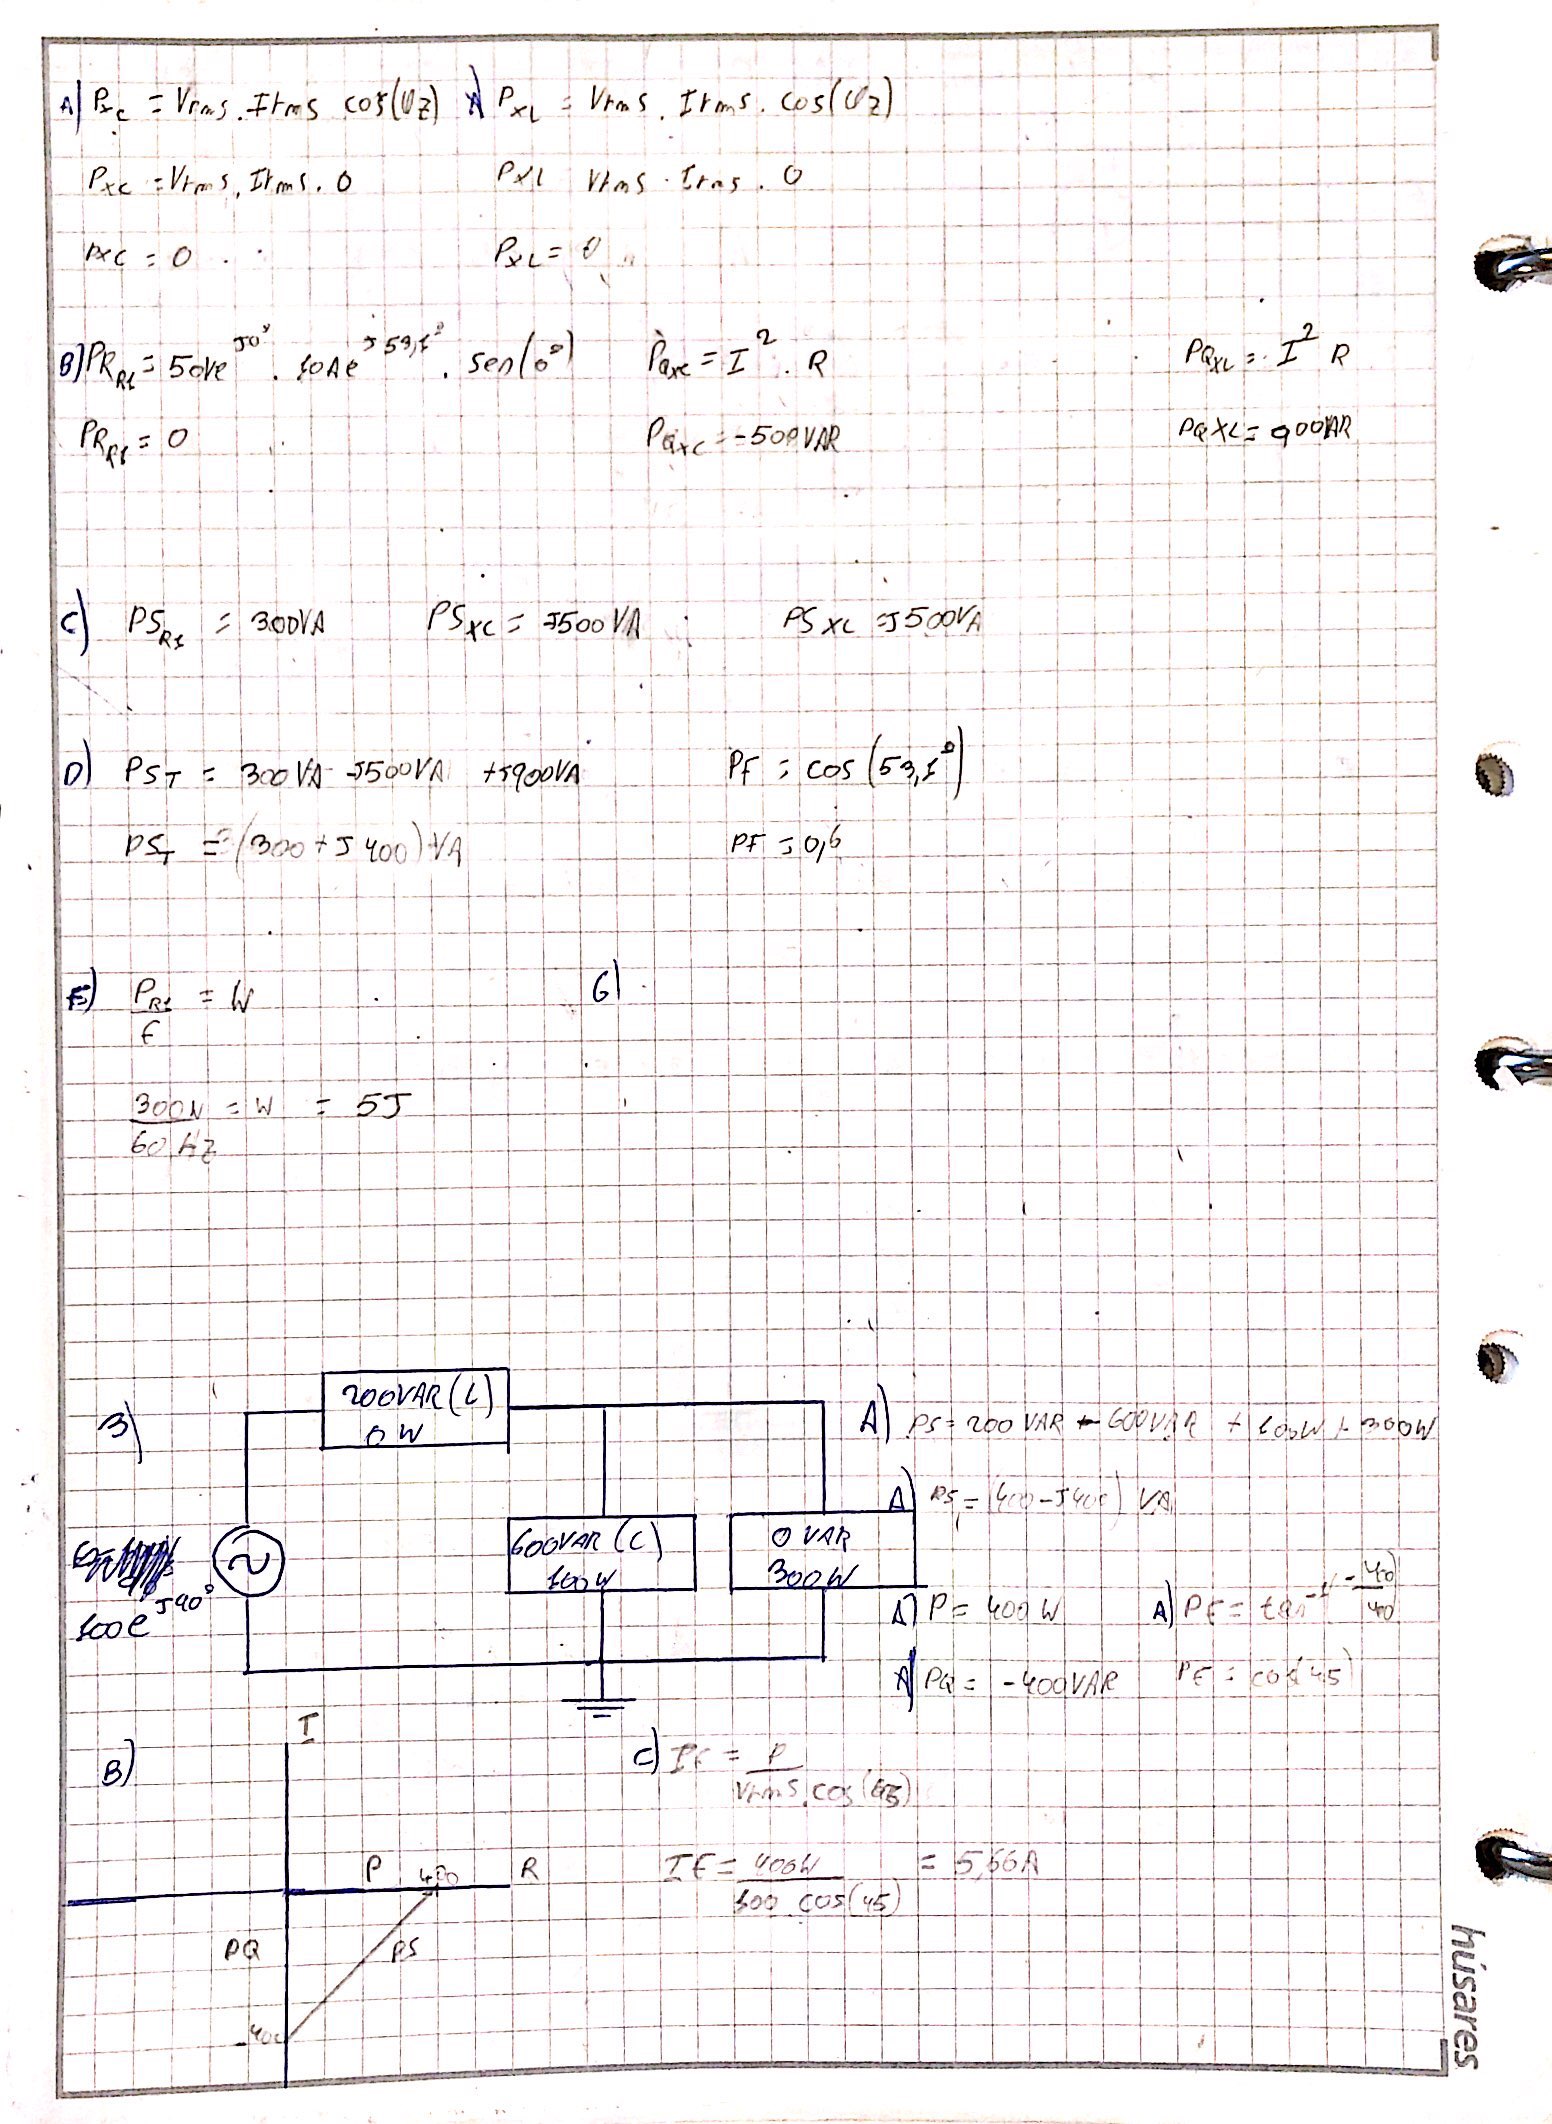 A) Pxc = Vrms . Irms cos(φz) A) PXL = Vrms . Irms . cos(φz)
Pxc = Vrms . Irms . 0 PXL Vrms . Irms . 0
PXC = 0 PXL = 0
B) PR R1 = 50Ve^J0° . 10Ae^J53,1° . sen(0°) PQxc = I² . R PQXL = I² R
PR R1 = 0 PQxc = -500VAR PQXL = 900VAR
C) PS R1 = 300VA PS XC = -J500VA PS XL = J500VA
D) PST = 300VA -J500VA +J900VA PF = cos(53,1°)
PST = (300 + J400) VA PF = 0,6
E) PR1/f = W G)
300W/60Hz = W = 5J
3) 200VAR (L)
0 W
600VAR (C)
100W
0 VAR
300W
100e^J90°
A) PS = 200 VAR - 600VAR + 100W + 300W
A) PS = (400 - J400) VA
A) P = 400 W A) PF = tan⁻¹ -400/400
A) PQ = -400VAR PF = cos(45)
B) I
P 400 R
PQ PS
-400
C) IF = P/Vrms . cos(45)
IF = 400W/100 . cos(45) = 5,66A
húsares